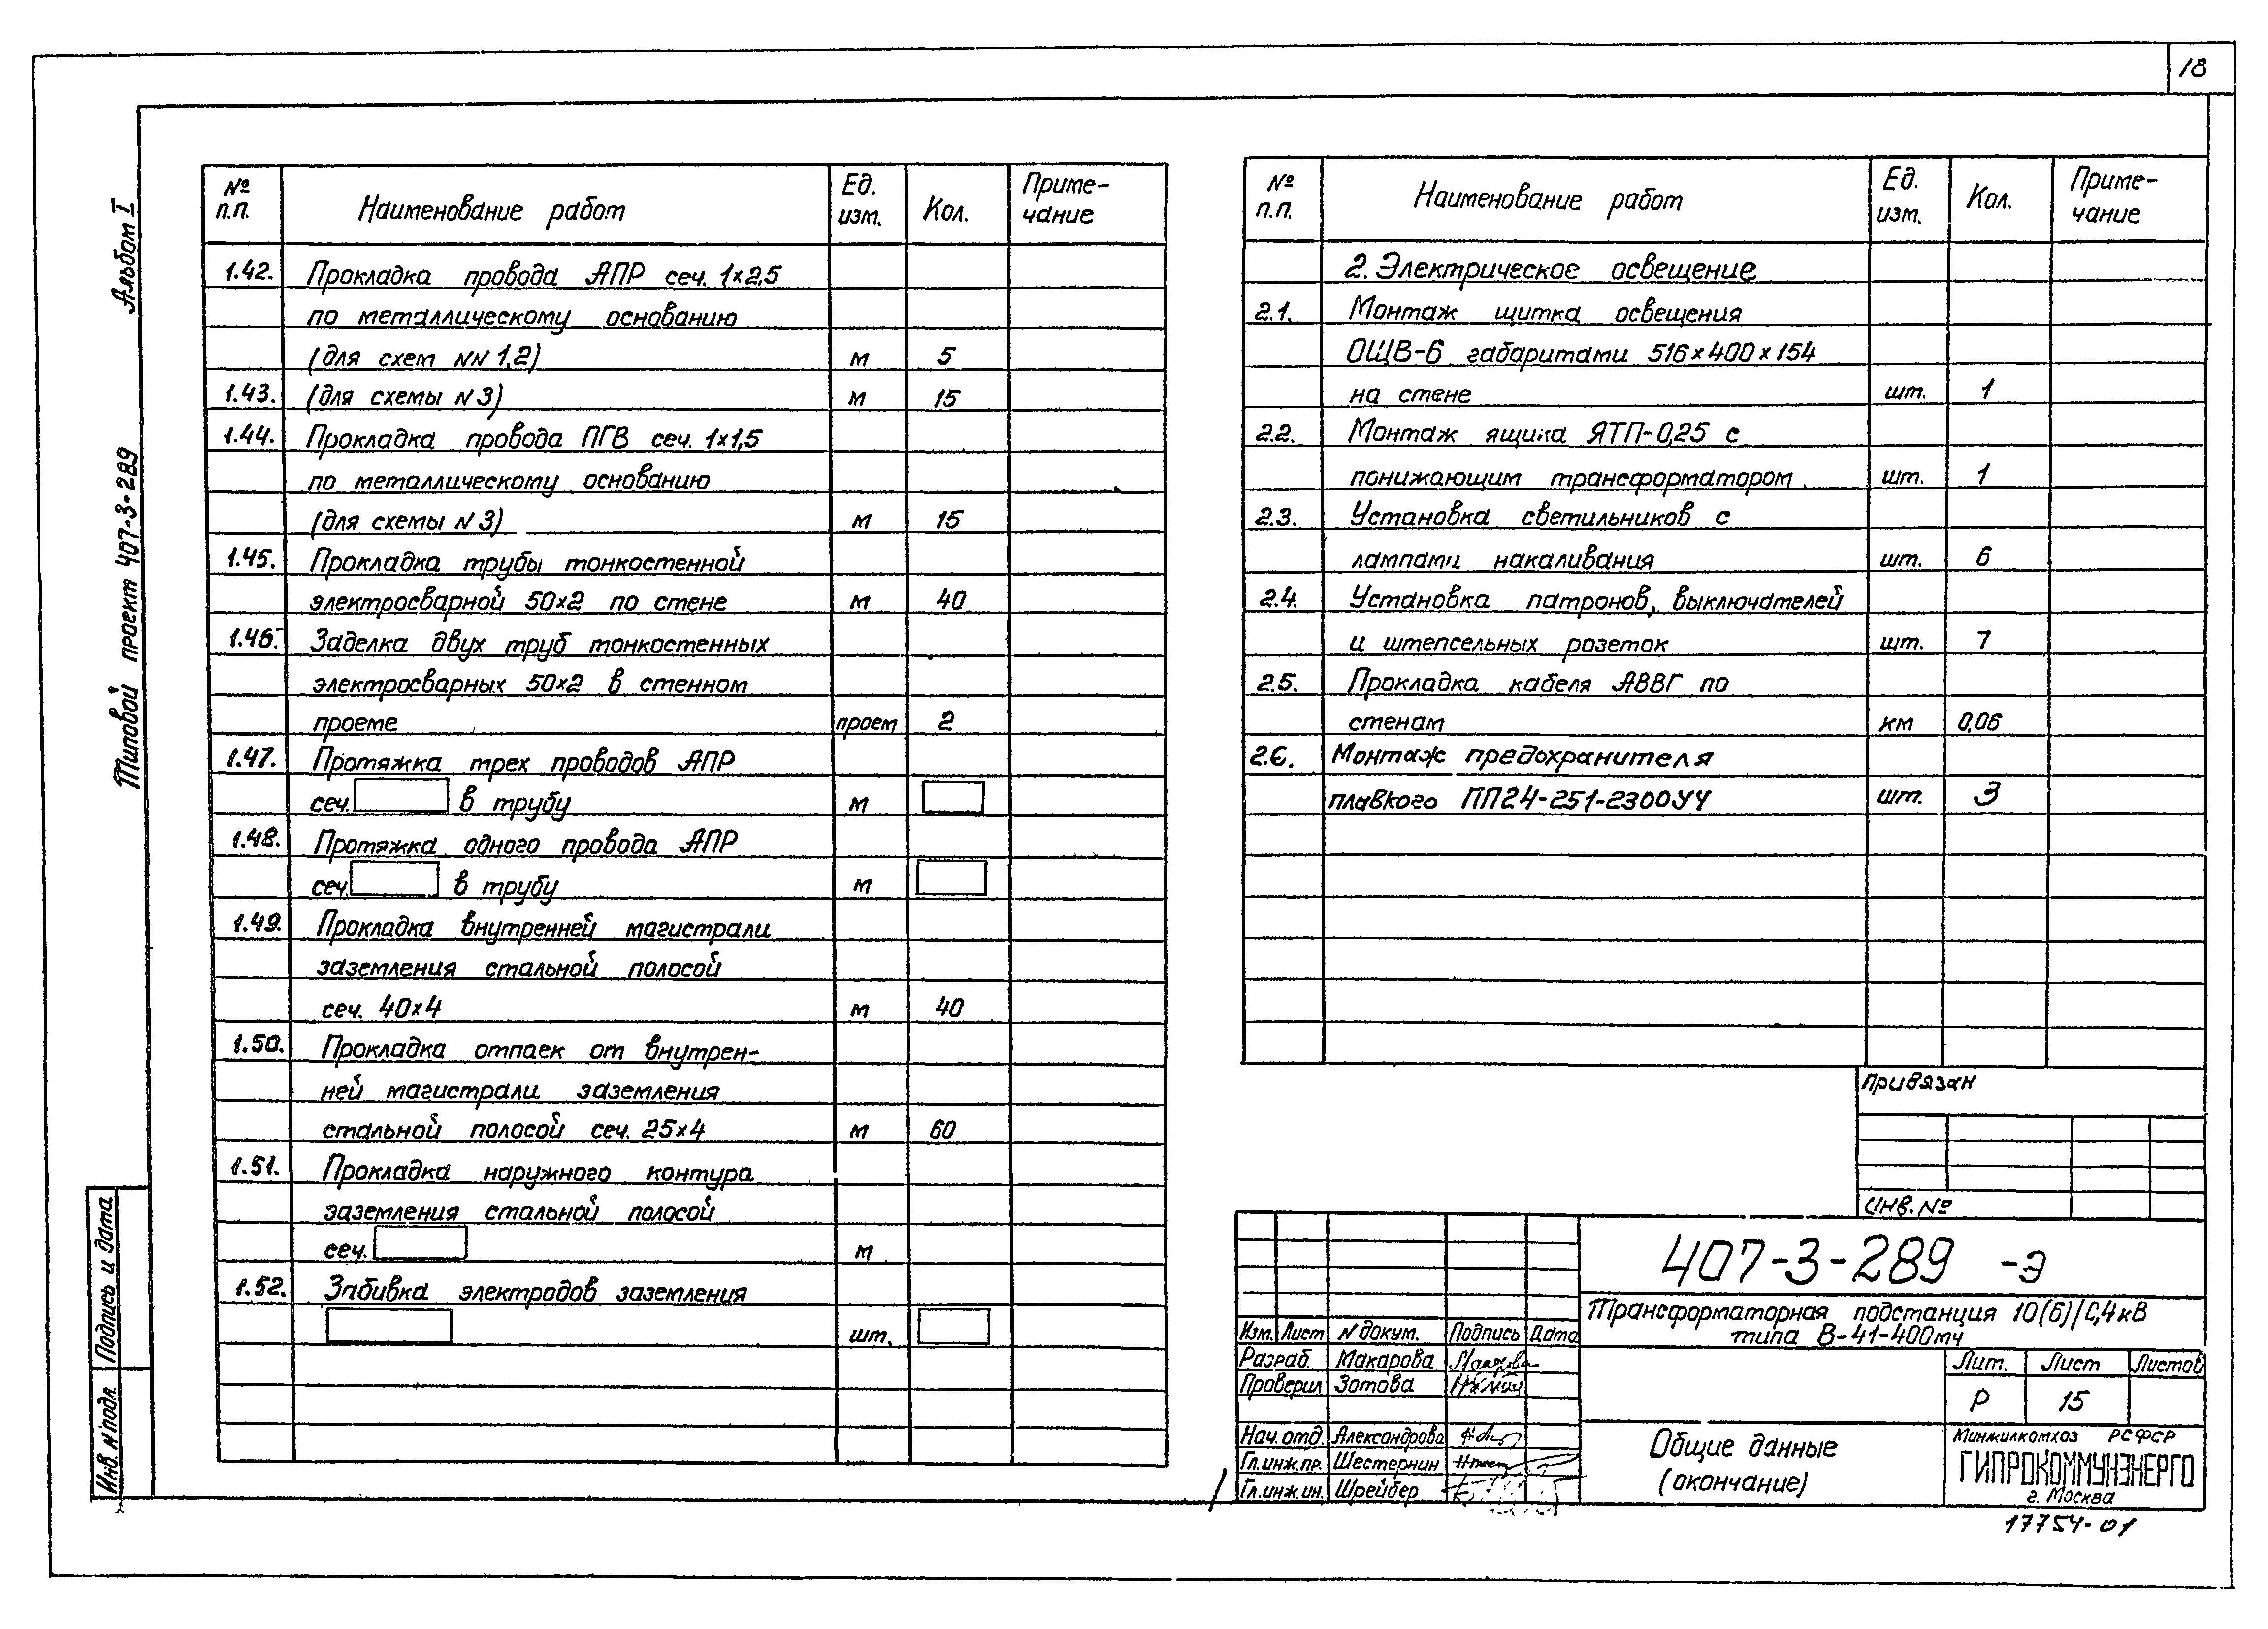 18
Альбом I
Типовой проект 407-3-289
Подпись и дата
Инв. N подл.
№ п.п. Наименование работ Ед. изм. Кол. Приме-чание
1.42. Прокладка провода АПР сеч. 1×2,5
по металлическому основанию
(для схем NN 1,2) м 5
1.43. (для схемы N 3) м 15
1.44. Прокладка провода ПГВ сеч. 1×1,5
по металлическому основанию
(для схемы N 3) м 15
1.45. Прокладка трубы тонкостенной
электросварной 50×2 по стене м 40
1.46. Заделка двух труб тонкостенных
электросварных 50×2 в стенном
проеме проем 2
1.47. Протяжка трех проводов АПР
сеч. в трубу м
1.48. Протяжка одного провода АПР
сеч. в трубу м
1.49. Прокладка внутренней магистрали
заземления стальной полосой
сеч. 40×4 м 40
1.50. Прокладка отпаек от внутрен-
ней магистрали заземления
стальной полосой сеч. 25×4 м 60
1.51. Прокладка наружного контура
заземления стальной полосой
сеч. м
1.52. Забивка электродов заземления
шт.
№ п.п. Наименование работ Ед. изм. Кол. Приме-чание
2. Электрическое освещение
2.1. Монтаж щитка освещения
ОЩВ-6 габаритами 516×400×154
на стене шт. 1
2.2. Монтаж ящика ЯТП-0,25 с
понижающим трансформатором шт. 1
2.3. Установка светильников с
лампами накаливания шт. 6
2.4. Установка патронов, выключателей
и штепсельных розеток шт. 7
2.5. Прокладка кабеля АВВГ по
стенам км 0,06
2.6. Монтаж предохранителя
плавкого ПП24-251-2300У4 шт. 3
Привязан
Инв. №
407-3-289 -Э
Трансформаторная подстанция 10(6)/0,4кВ
типа В-41-400мч
Изм. Лист N докум. Подпись Дата
Разраб. Макарова
Проверил Зотова
Нач. отд. Александрова
Гл. инж. пр. Шестернин
Гл. инж. ин. Шрейбер
Общие данные
(окончание)
Лит. Лист Листов
Р 15
Минжилкомхоз РСФСР
ГИПРОКОММУНЭНЕРГО
г. Москва
17754-01